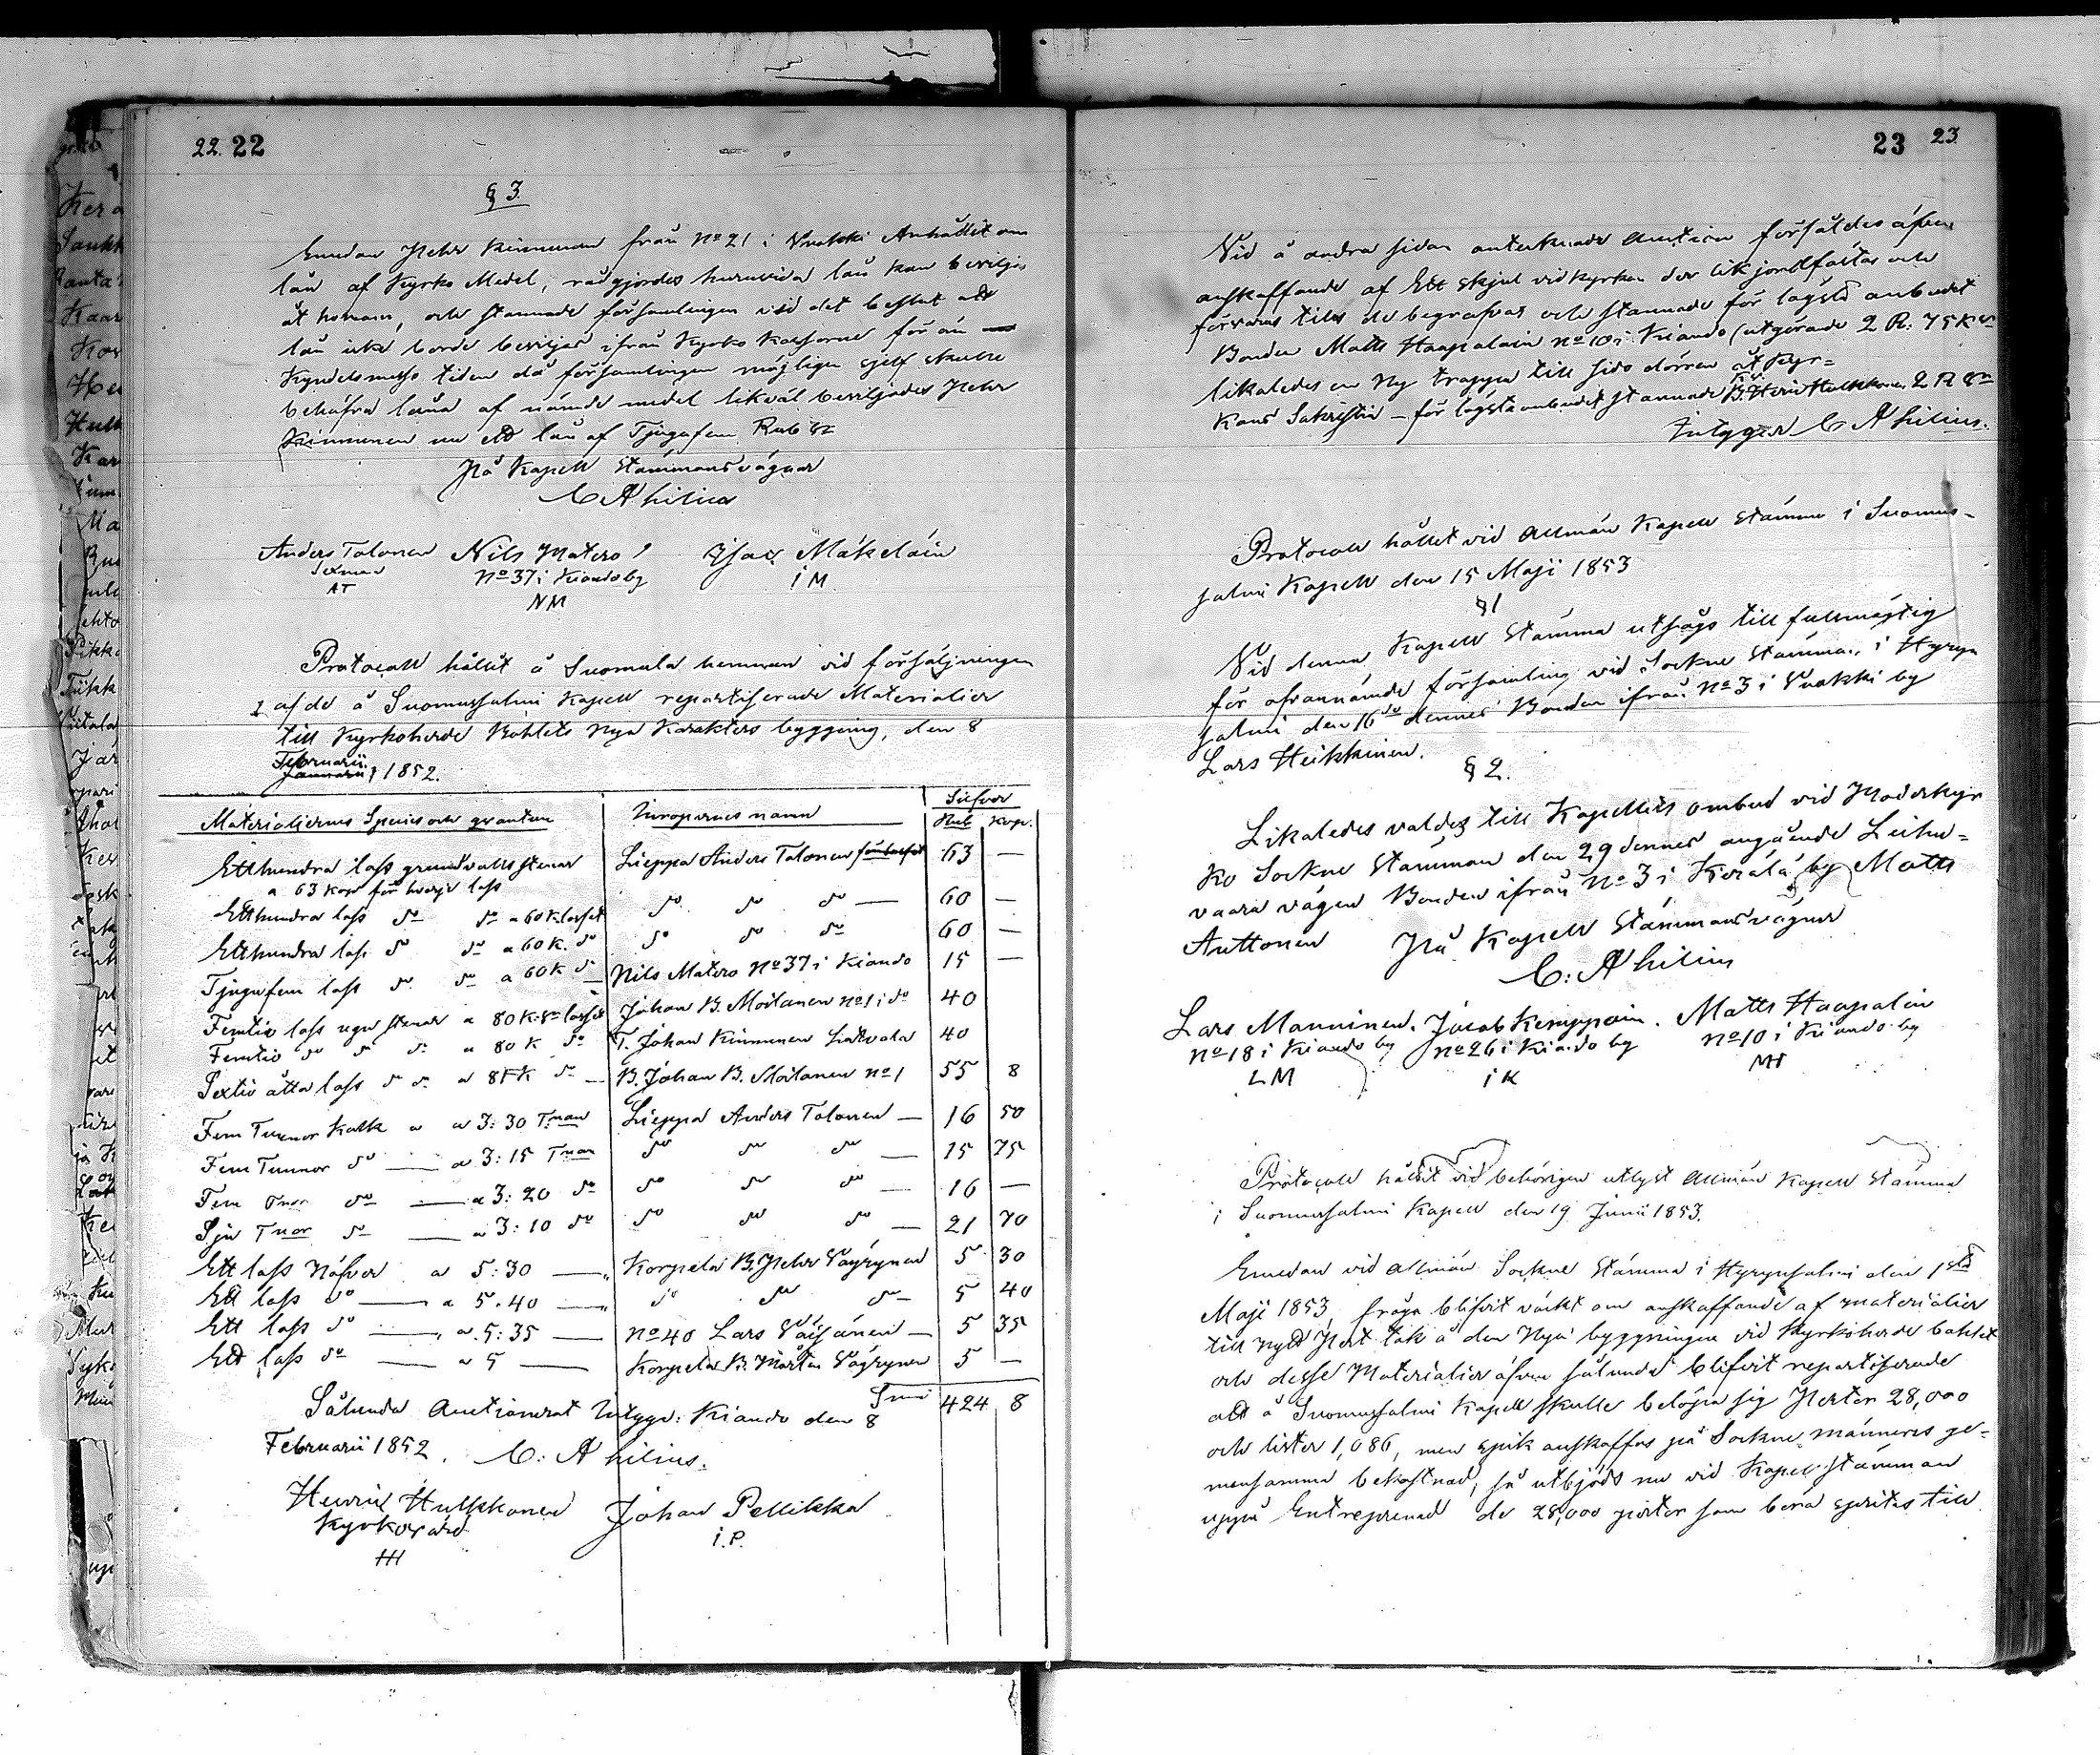 22. 22
§ 3.
Emedan Petter Kinnunen från No 21 i Vuokki Anhållit om
lån af Kyrko Medel, rådgjordes huruvida lån kan beviljas
åt honom, och stannade församlingen vid det beslut att
lån icke borde beviljas ifrån Kyrko Kassorne för än
Kyndelsmesso tiden då församlingen möjligen sjelf skulle
behöfva låna af nämde medel likväl beviljades Petter
Kinnunen nu ett lån af Tjugufem Rub Sr
På Kapell Stämmans vägnar
C A hilius
Anders Tolonen Nils Matero Isac Mäkeläin
Sexman No 37 i Kiando by i M
AT NM
Protocoll hållit å Suomula hemman vid försäljningen
af de å Suomussalmi Kapell repartiserade Materialier
till Kyrkoherde Bohlets Nya Karakters byggning, den 8
Februarii
Januarii 1852.
Materialiernes Species och qvantum Inropernes namn Silfver
Rub Kop.
Etthundra lass grundvalls stenar Lieppa Anders Tolonen 63 —
a 63 kop för hvarje lass
Etthundra lass do do a 60 K lasset do do do — 60 —
Etthundra lass do do a 60 K. do do do do 60 —
Tjugufem lass do do a 60 K do — Nils Matero No 37 i Kiando 15 —
Femtio lass ugns stenar a 80 K. Sr lasset Johan B. Moilanen No 1 i do 40
Femtio do do do a 80 K do T. Johan Kinnunen Latvala 40
Sextio åtta lass do do a 81 K do — B. Johan B. Moilanen No 1 55 8
Fem Tunnor Kalk a a 3: 30 Tnan Lieppa Anders Tolonen — 16 50
Fem Tunnor do — a 3: 15 Tnan do do do — 15 75
Fem Tnor do — a 3: 20 do do do do — 16 —
Sju Tnor do — a 3: 10 do do do do — 21 70
Ett lass Näfver a 5: 30 — Korpela B. Petter Väyrynen 5 30
Ett lass do — a 5. 40 — do do do 5 40
Ett lass do — a 5: 35 — No 40 Lars Väisänen — 5 35
Ett lass do — a 5 — Korpela B. Mårten Väyrynen 5 —
Sm 424 8
Sålunda Auctionerat Intygar: Kiando den 8
Februarii 1852. C: A hilius.
Henric Hulkkonen Johan Pellikka
Kyrkovärd i. P.
HH
23 23
Vid å andra sidan antecknade Auction försåldes äfven
anskaffande af Ett skjul vid kyrkan der lik jordfästas och
förvaras tills de begrafvas och stannade för lägsta anbudet
Bonden Matts Haapalain No 10 i Kiando (utgörande 2 R: 75 K Sr
likaledes en Ny trappa till sido dörren åt Kyr-
kans Sakristia — för lägsta anbudet stannade Kv. B. Henr Hulkkonen 2 R Sr
Intygar C A hilius.
Protocoll hållet vid Allmän Kapell Stämma i Suomus-
salmi Kapell den 15 Maji 1853
§ 1
Vid denna Kapell Stämma utsågs till fullmägtig
för ofvannämde församling vid Sockne Stämma i Hyryn
salmi den 16de dennes Bonden ifrån No 3 i Vuokki by
Lars Heikkinen.
§ 2.
Likaledes valdes till Kapellets ombud vid Moderkyr
ko Sockne Stämman den 29 dennes angående Leihu-
vaara vägen Bonden ifrån No 3 i Kerälä by Matts
Anttonen På Kapell Stämmans vägnar
C: A hilius
Lars Manninen. Jacob Kemppain. Matts Haapalin
No 18 i Kiando by No 26 i Kiando by No 10 i Kiando by
LM i K MH
Protocoll hållit vid behörigen utlyst Allmän Kapell Stämma
i Suomussalmi Kapell den 19 Junii 1853.
Emedan vid allmän Sockne Stämma i Hyrynsalmi den 1sta
Maji 1853, fråga blifvit väckt om anskaffande af materialier
till nytt Pert tak å den Nya byggningen vid Kyrkoherde bohlet
och desse Materialier äfven sålunde blifvit repartiserade
att å Suomussalmi Kapell skulle belöpa sig Perter 28,000
och lister 1,086, men spik anskaffas på Sockne männens ge-
mensamma bekostnad, så utbjöds nu vid Kapell stämman
uppå Entreprenad de 28,000 perter som böra spritas till